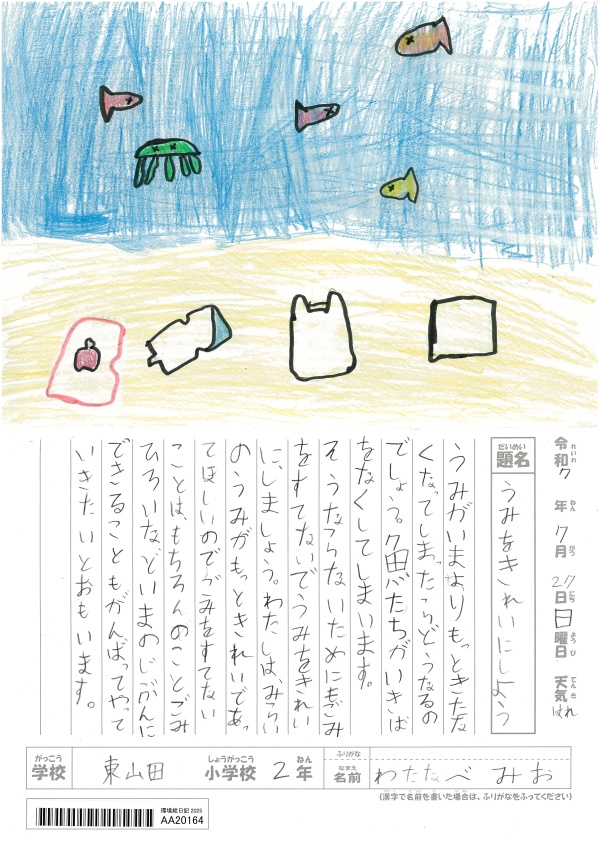 令和7年7月27日日曜日 天気はれ
れいわ ねん がつ にち ようび てんき
題名 うみをきれいにしよう
だいめい
うみがいまよりもっときたな
くなってしまったらどうなるの
でしょう。魚たちがいきば
をなくしてしまいます。
そうならないためにもごみ
をすてないでうみをきれい
に、しましょう。わたしは、みらい
のうみがもっときれいであっ
てほしいのでごみをすてない
ことは、もちろんのことごみ
ひろいなどいまのじぶんに
できることもがんばってやって
いきたいとおもいます。
がっこう しょうがっこう ねん
学校 東山田 小学校 2年
ふりがな
なまえ
名前 わたなべ みお
(漢字で名前を書いた場合は、ふりがなをふってください)
環境絵日記 2025
AA20164